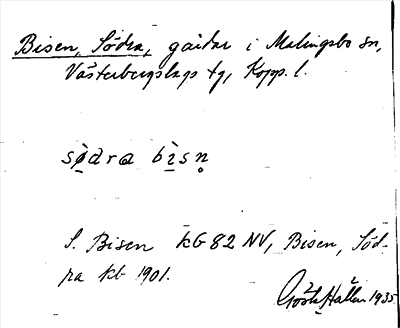 Bisen, Södra, gårdar i Malingsbo sn,
Västerbergslags tg, Kopp. l.
sø̀dra bìsn̥
S. Bisen KG 82 NV, Bisen, Söd-
ra kb 1901.
Gösta Hallén 1935.